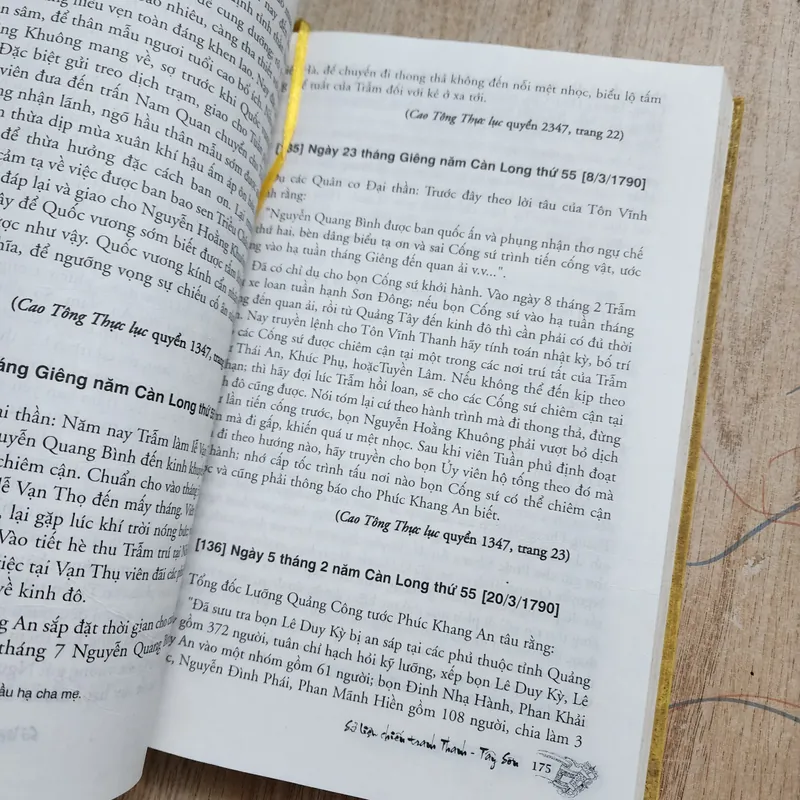 nay để
tịnh tính thí
để cung dưỡng
bao nhiêu, càng tha thiết
miếu vẹn toàn đáng khen lao. Nay
sâm, để thân mẫu ngươi tuổi cao bổ ích
Khuông mang về, sợ trước khi Quốc
Đặc biệt gửi treo dịch trạm, giao cho
viên đưa đến trấn Nam Quan chuyển
nhận lãnh, ngõ hầu thân mẫu sớm được
thừa dịp mùa xuân khí hậu ấm áp
để thừa hưởng đặc cách ban ơn. Lại
cảm tạ về việc được ban bao sen Triều
đáp lại và giao cho Nguyễn Hoằng Khuông
để Quốc vương sớm biết được tấm
được như vậy. Quốc vương kính cẩn
nghĩa, để ngưỡng vọng sự chiếu cố
(Cao Tông Thực lục quyển 1347, trang
tháng Giêng năm Càn Long thứ
Đại thần: Năm nay Trẫm làm lễ
Nguyễn Quang Bình đến kinh
chiêm cận. Chuẩn cho vào tháng
lễ Vạn Thọ đến mấy tháng.
, lại gặp lúc khí trời nóng
Vào tiết hè thu Trẫm trú tại
việc tại Vạn Thụ viên đãi các
về kinh đô.
An sắp đặt thời gian cho
tháng 7 Nguyễn Quang
hầu hạ cha mẹ.
Hà, để chuyến đi thong thả không đến nỗi mệt nhọc, biểu lộ tấm
mắt của Trẫm đối với kẻ ở xa tới.
(Cao Tông Thực lục quyển 2347, trang 22)
35] Ngày 23 tháng Giêng năm Càn Long thứ 55 [8/3/1790]
dụ các Quân cơ Đại thần: Trước đây theo lời tâu của Tôn Vĩnh
rằng:
"Nguyễn Quang Bình được ban quốc ấn và phụng nhận thơ ngự chế
thứ hai, bèn dâng biểu tạ ơn và sai Cống sứ trình tiến cống vật, ước
vào hạ tuần tháng Giêng đến quan ải v.v...".
Đã có chỉ dụ cho bọn Cống sứ khởi hành. Vào ngày 8 tháng 2 Trẫm
xe loan tuần hạnh Sơn Đông; nếu bọn Cống sứ vào hạ tuần tháng
đến quan ải, rồi từ Quảng Tây đến kinh đô thì cần phải có đủ thời
Nay truyền lệnh cho Tôn Vĩnh Thanh hãy tính toán nhật kỳ, bố trí
các Cống sứ được chiêm cận tại một trong các nơi trú tất của Trẫm
Thái An, Khúc Phụ, hoặcTuyền Lâm. Nếu không thể đến kịp theo
hạn; thì hãy đợi lúc Trẫm hồi loan, sẽ cho các Cống sứ chiêm cận tại
đô cũng được. Nói tóm lại cứ theo hành trình mà đi thong thả, đừng
lần tiến cống trước, bọn Nguyễn Hoằng Khuông phải vượt bỏ dịch
mà đi gấp, khiến quá ư mệt nhọc. Sau khi viên Tuần phủ định đoạt
đi theo hướng nào, hãy truyền cho bọn Ủy viên hộ tống theo đó mà
hành; nhớ cấp tốc trình tấu nơi nào bọn Cống sứ có thể chiêm cận
và cũng phải thông báo cho Phúc Khang An biết.
(Cao Tông Thực lục quyển 1347, trang 23)
[136] Ngày 5 tháng 2 năm Càn Long thứ 55 [20/3/1790]
Tổng đốc Lưỡng Quảng Công tước Phúc Khang An tâu rằng:
"Đã sưu tra bọn Lê Duy Kỳ bị an sáp tại các phủ thuộc tỉnh Quảng
gồm 372 người, tuân chỉ hạch hỏi kỹ lưỡng, xếp bọn Lê Duy Kỳ, Lê
An vào một nhóm gồm 61 người; bọn Đinh Nhạ Hành, Phan Khải
Nguyễn Đình Phái, Phan Mãnh Hiền gồm 108 người, chia làm 3
Sử liệu chiến tranh Thanh - Tây Sơn 175